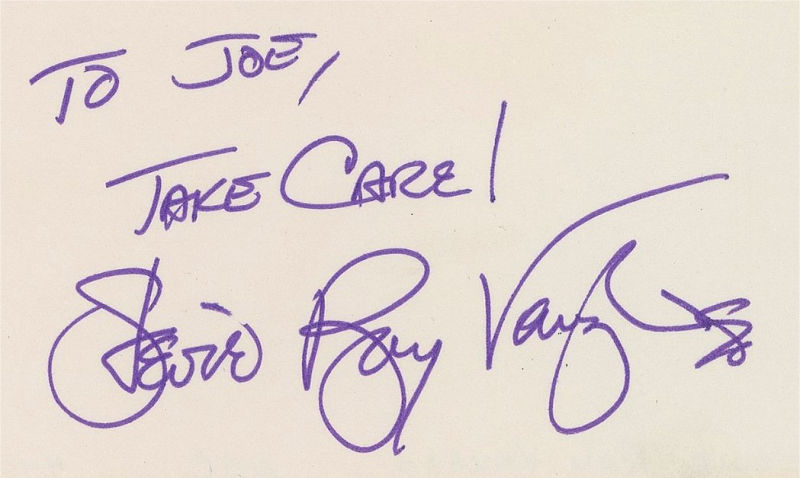 TO JOE,
TAKE CARE!
Stevie Ray Vaughan